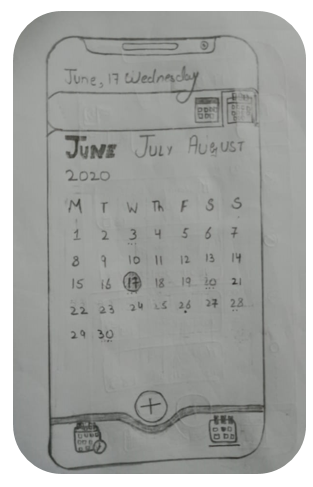 June, 17 Wednesday
JUNE JULY AUGUST
2020
M T W Th F S S
1 2 3 4 5 6 7
8 9 10 11 12 13 14
15 16 17 18 19 20 21
22 23 24 25 26 27 28
29 30